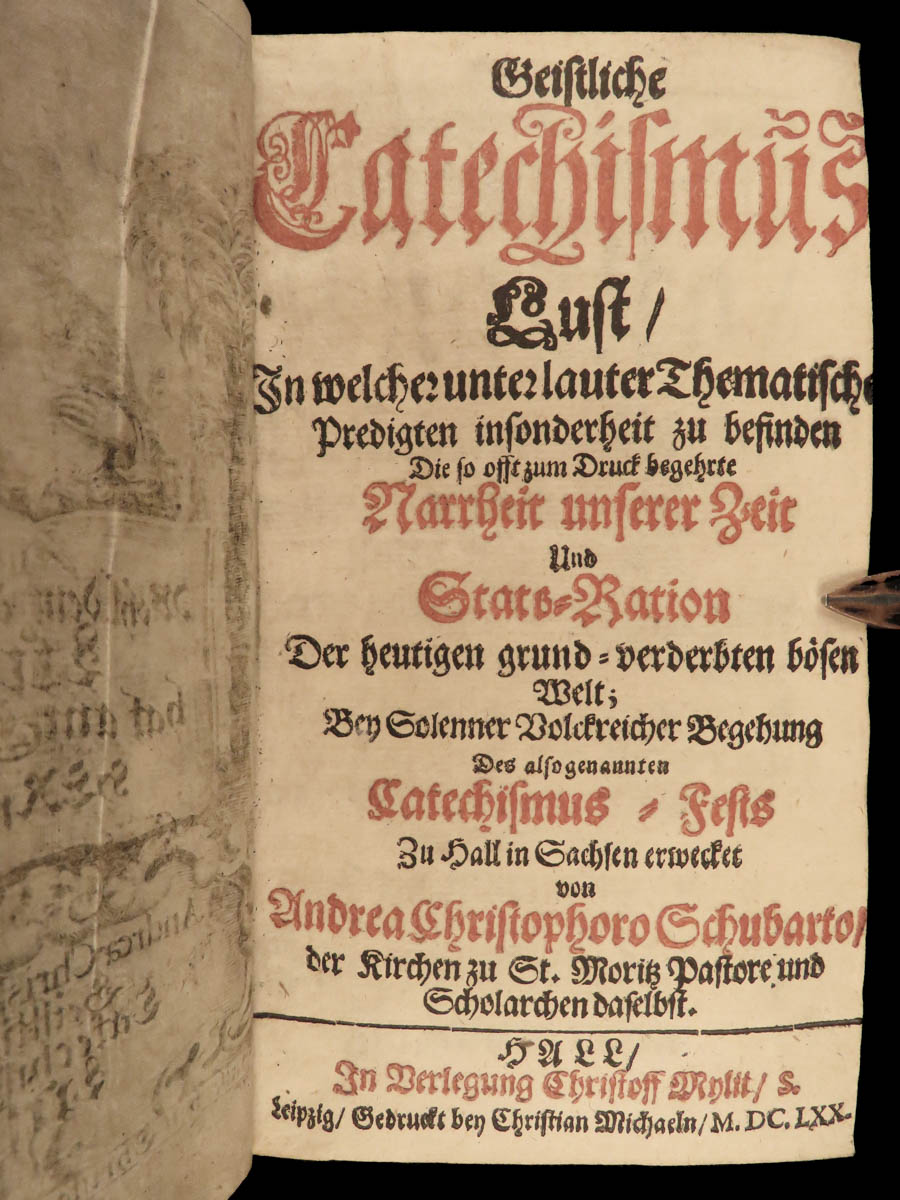 Geistliche
Catechismũs
Lust /
In welcher unter lauter Thematische
Predigten insonderheit zu befinden
Die so offt zum Druck begehrte
Narrheit unserer Zeit
Und
Stats-Ration
Der heutigen grund-verderbten bösen
Welt;
Bey Solenner Volckreicher Begehung
Des alsogenannten
Catechismus-Fests
Zu Hall in Sachsen erwecket
von
Andrea Christophoro Schubarto/
der Kirchen zu St. Moritz Pastore und
Scholarchen daselbst.
HALL/
In Verlegung Christoff Mylii/ S.
Leipzig/ Gedruckt bey Christian Michaeln/ M. DC. LXX.